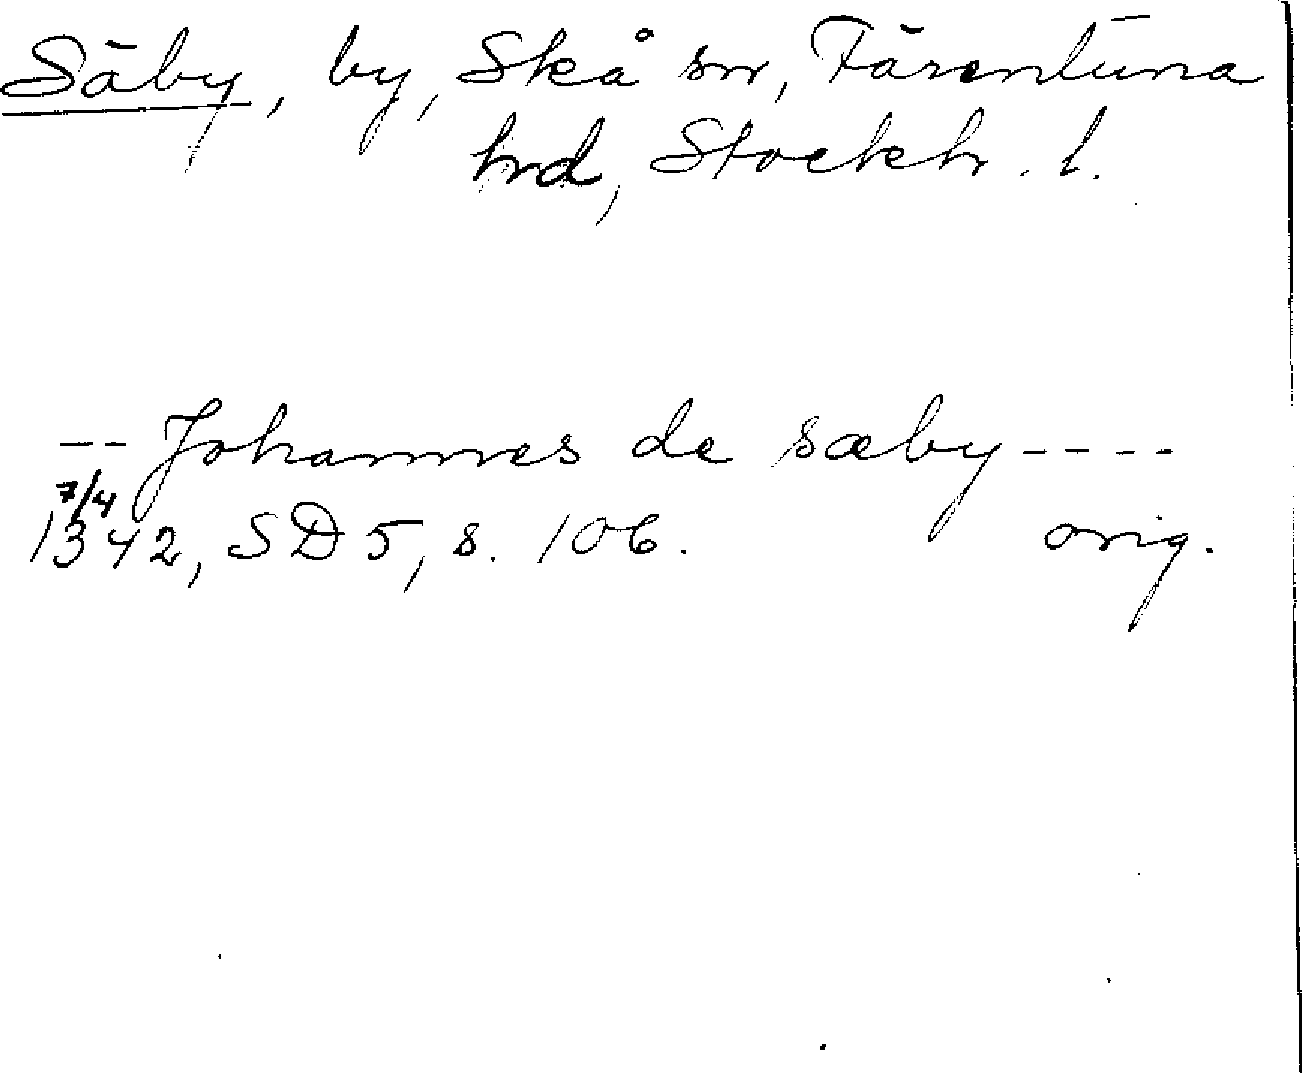 Säby, by, Skå sn, Färentuna
hrd, Stockh. l.
-- Johannes de sæby ----
7/4
1342, SD 5, s. 106. orig.